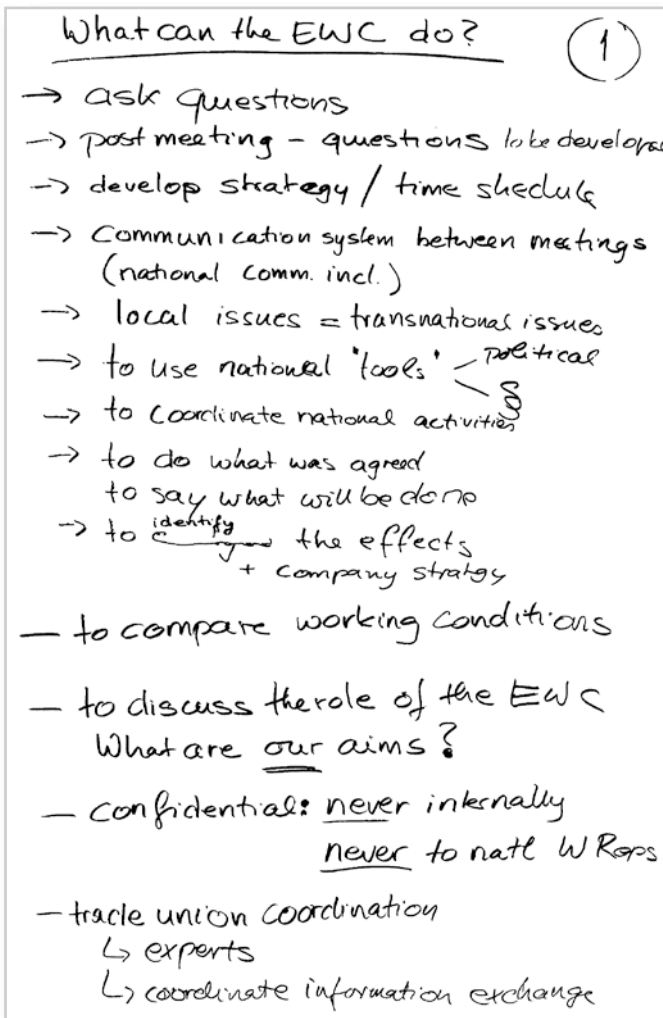 What can the EWC do?
1
→ ask questions
→ post meeting - questions to be developed
→ develop strategy / time shedule
→ Communication system between meetings
(national comm. incl.)
→ local issues = transnational issues
→ to use national 'tools' political
§
→ to coordinate national activities
→ to do what was agreed
to say what will be done
→ to identify the effects
+ company stratgy
— to compare working conditions
— to discuss the role of the EWC
What are our aims?
— confidential: never internally
never to natl WReps
— trade union coordination
↳ experts
↳ coordinate information exchange